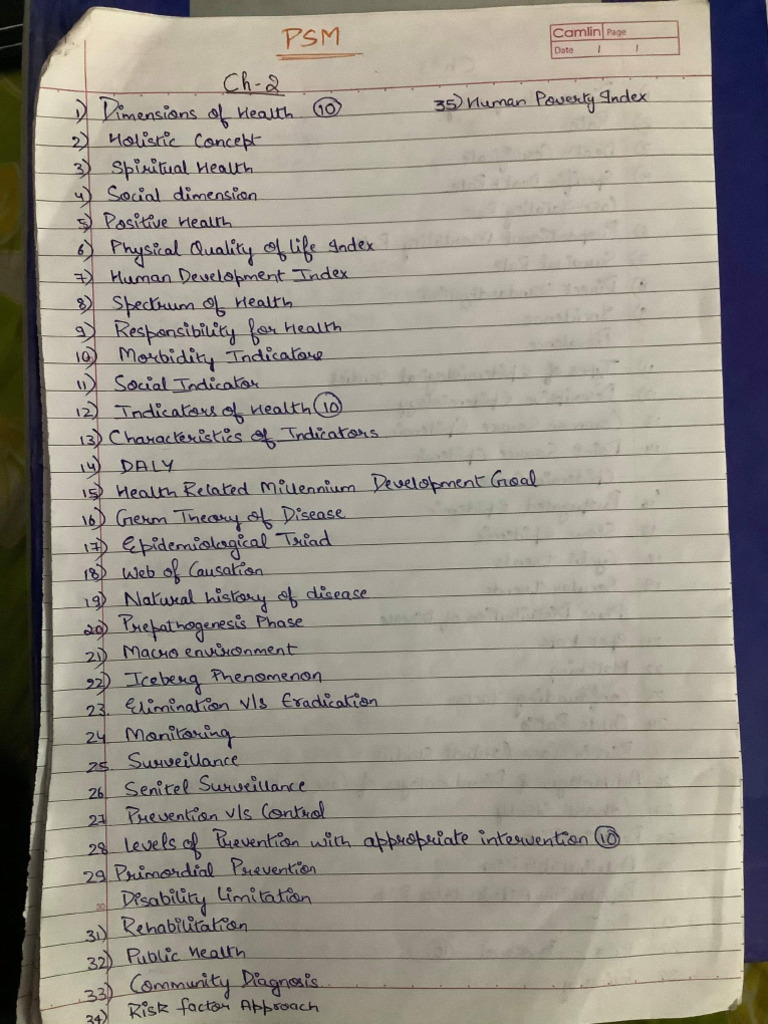 PSM
Camlin Page
Date / /
Ch-2
1) Dimensions of Health (10)
35) Human Poverty Index
2) Holistic Concept
3) Spiritual Health
4) Social dimension
5) Positive Health
6) Physical Quality of life Index
7) Human Development Index
8) Spectrum of Health
9) Responsibility for Health
10) Morbidity Indicators
11) Social Indicator
12) Indicators of Health (10)
13) Characteristics of Indicators
14) DALY
15) Health Related Millennium Development Goal
16) Germ Theory of Disease
17) Epidemiological Triad
18) Web of Causation
19) Natural history of disease
20) Prepathogenesis Phase
21) Macro environment
22) Iceberg Phenomenon
23. Elimination v/s Eradication
24 Monitoring
25. Surveillance
26 Senitel Surveillance
27 Prevention v/s Control
28 Levels of Prevention with appropriate intervention (10)
29 Primordial Prevention
30 Disability Limitation
31) Rehabilitation
32) Public Health
33) Community Diagnosis
34) Risk factor Approach